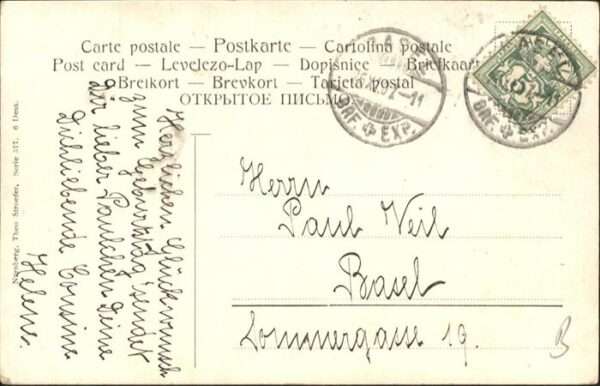 Carte postale — Postkarte — Cartolina postale
Post card — Levelezo-Lap — Dopisnice — Briefkaart
Brefkort — Brevkort — Tarjeta postal
ОТКРЫТОЕ ПИСЬМО
BRF. EXP.
BRF. EXP.
Herzlichen Glückwunsch
zum Geburtstag sendet
dir lieber Paulchen Deine
Dichliebende Cousine
Helene.
Herrn
Paul Weil
Basel
Lommergasse 19.
B
Nürnberg, Theo Stroefer, Serie 517. 6 Dess.